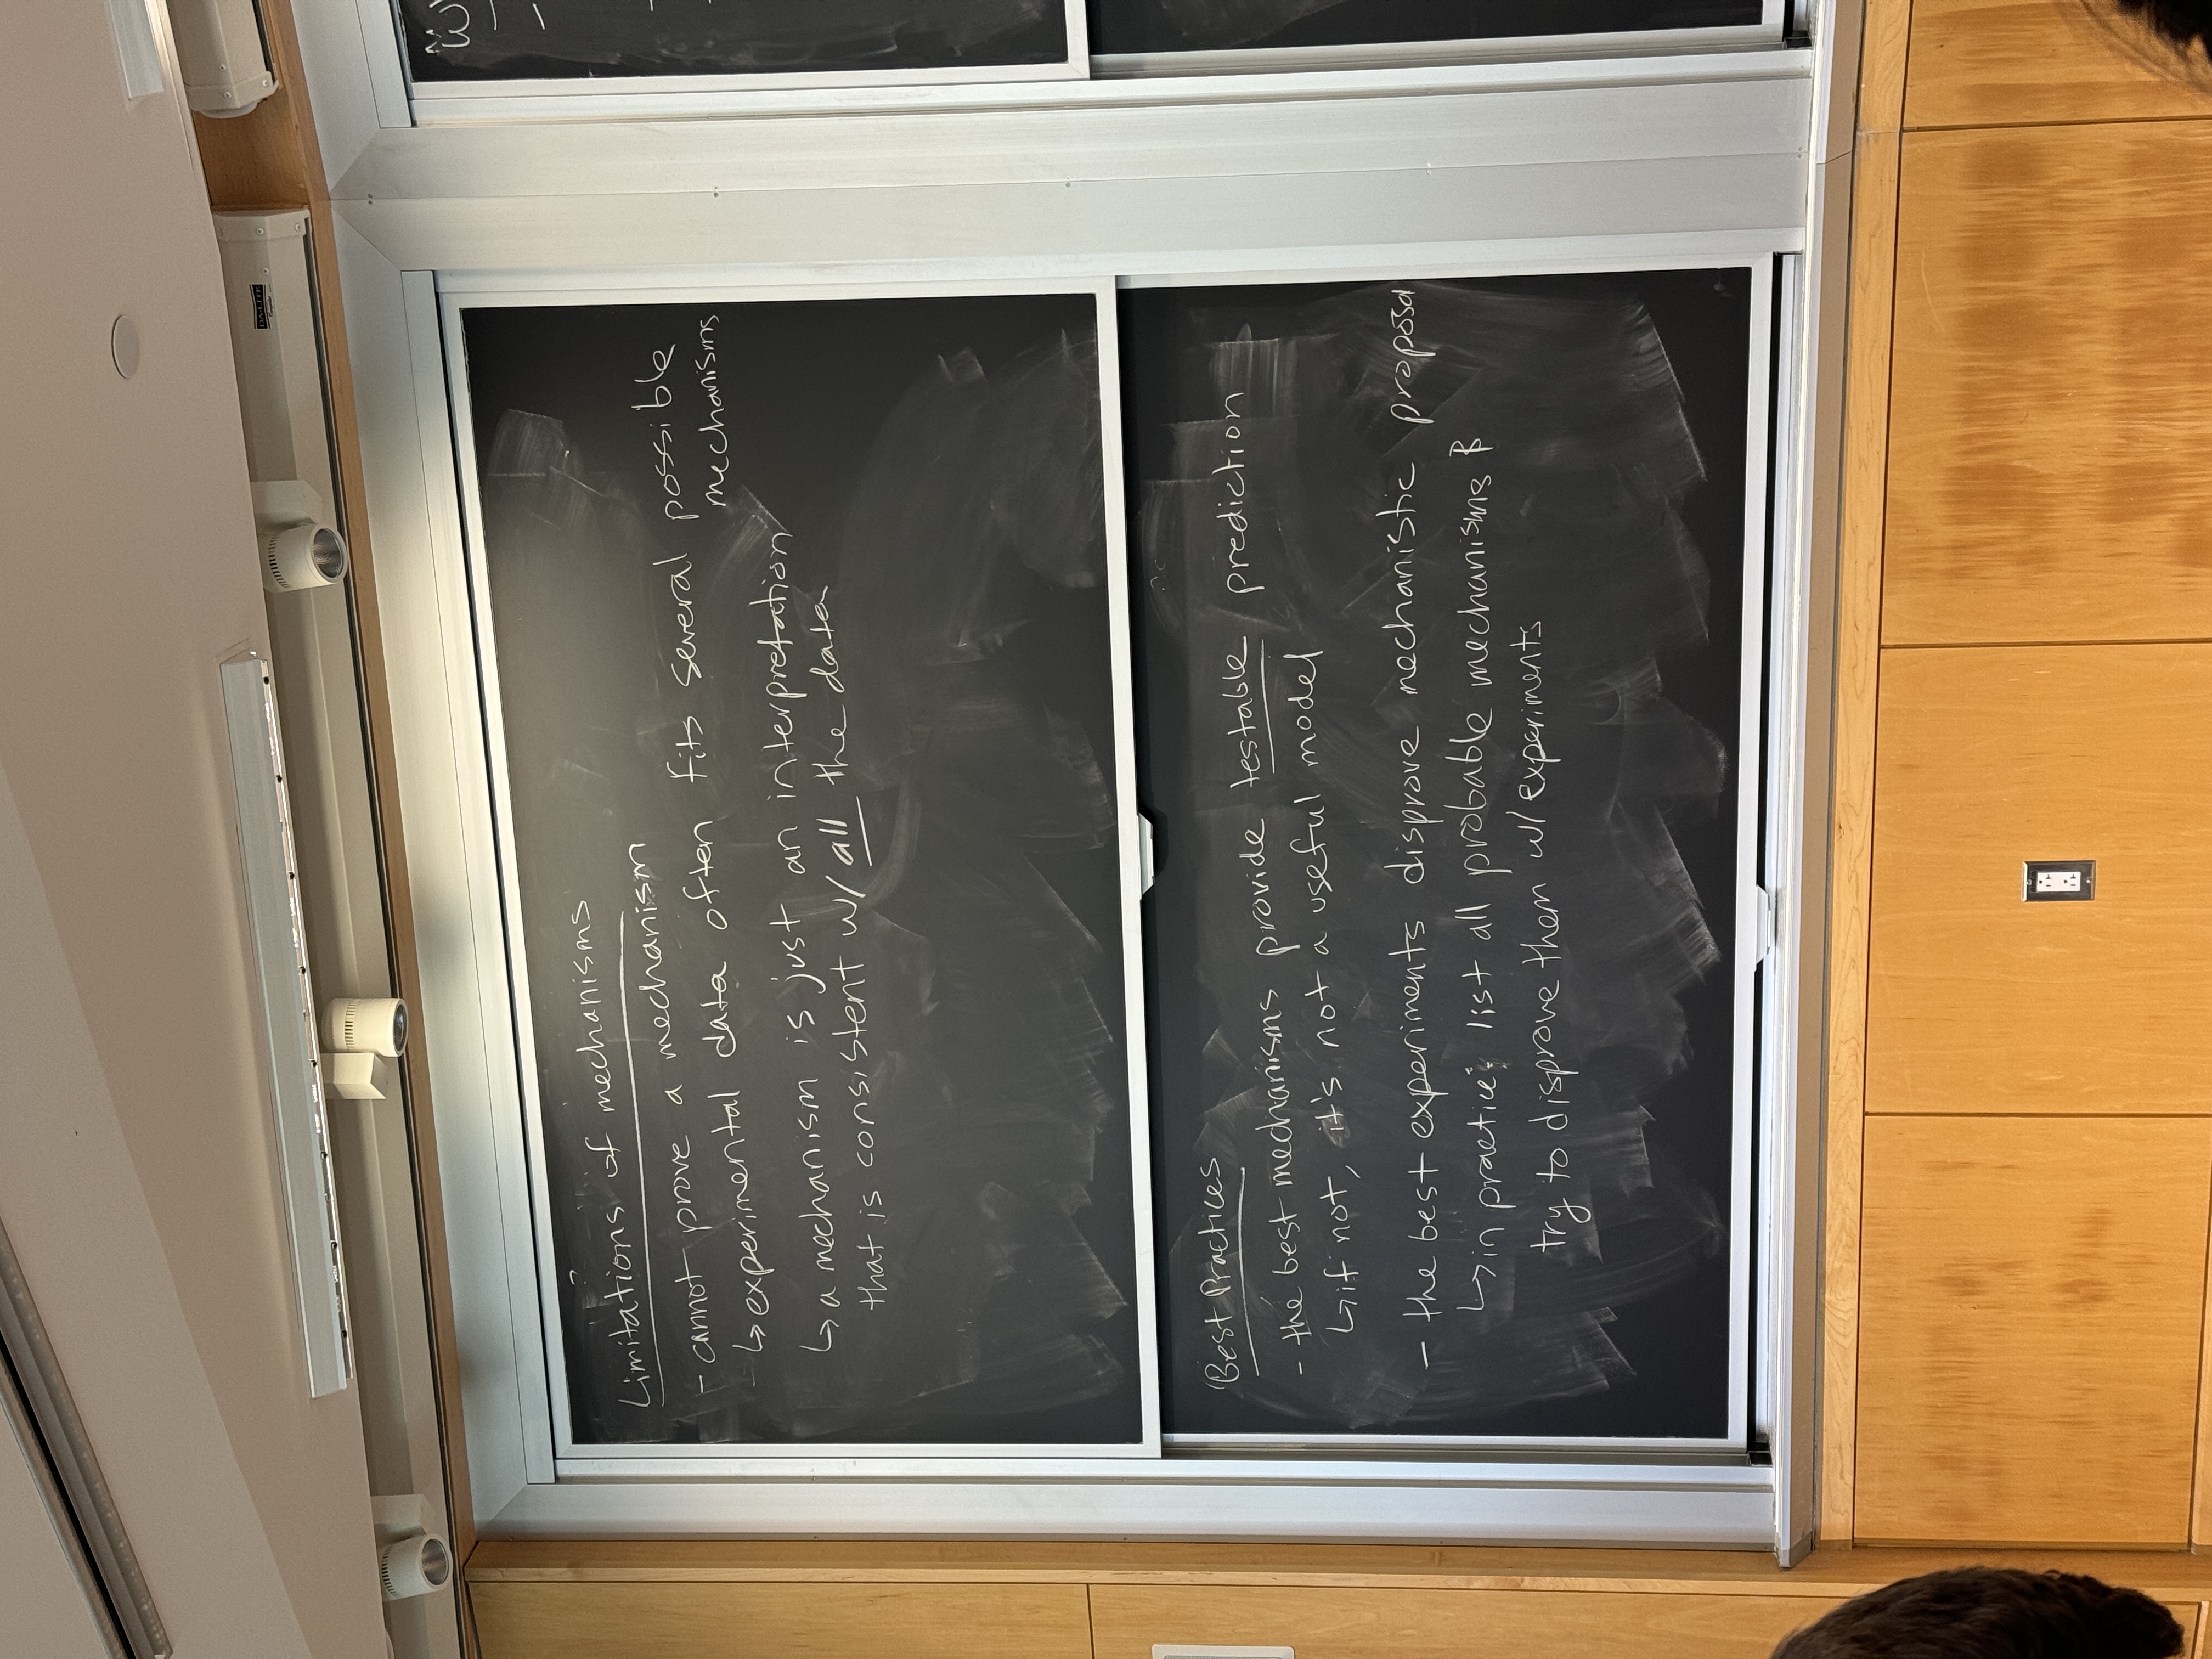 DA-LITE
Limitations of mechanisms
- cannot prove a mechanism
↳ experimental data often fits several possible
mechanisms
↳ a mechanism is just an interpretation
that is consistent w/ all the data
Best Practices
- the best mechanisms provide testable prediction
↳ if not, it's not a useful model
- the best experiments disprove mechanistic proposal
↳ in practice: list all probable mechanisms &
try to disprove them w/ experiments